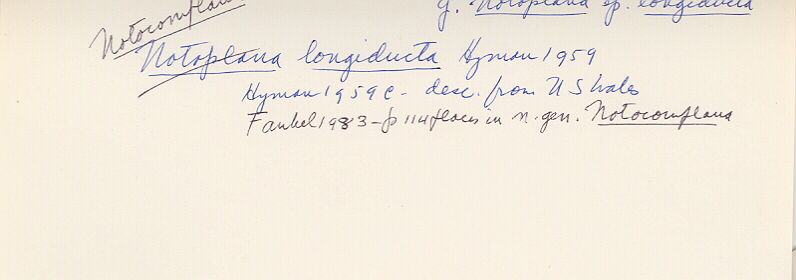 g. Notoplana sp. longiducta
Notocomplana
Notoplana longiducta Hyman 1959
Hyman 1959c - desc. from N S Wales
Faubel 1983 - p 114 places in n. gen. Notocomplana